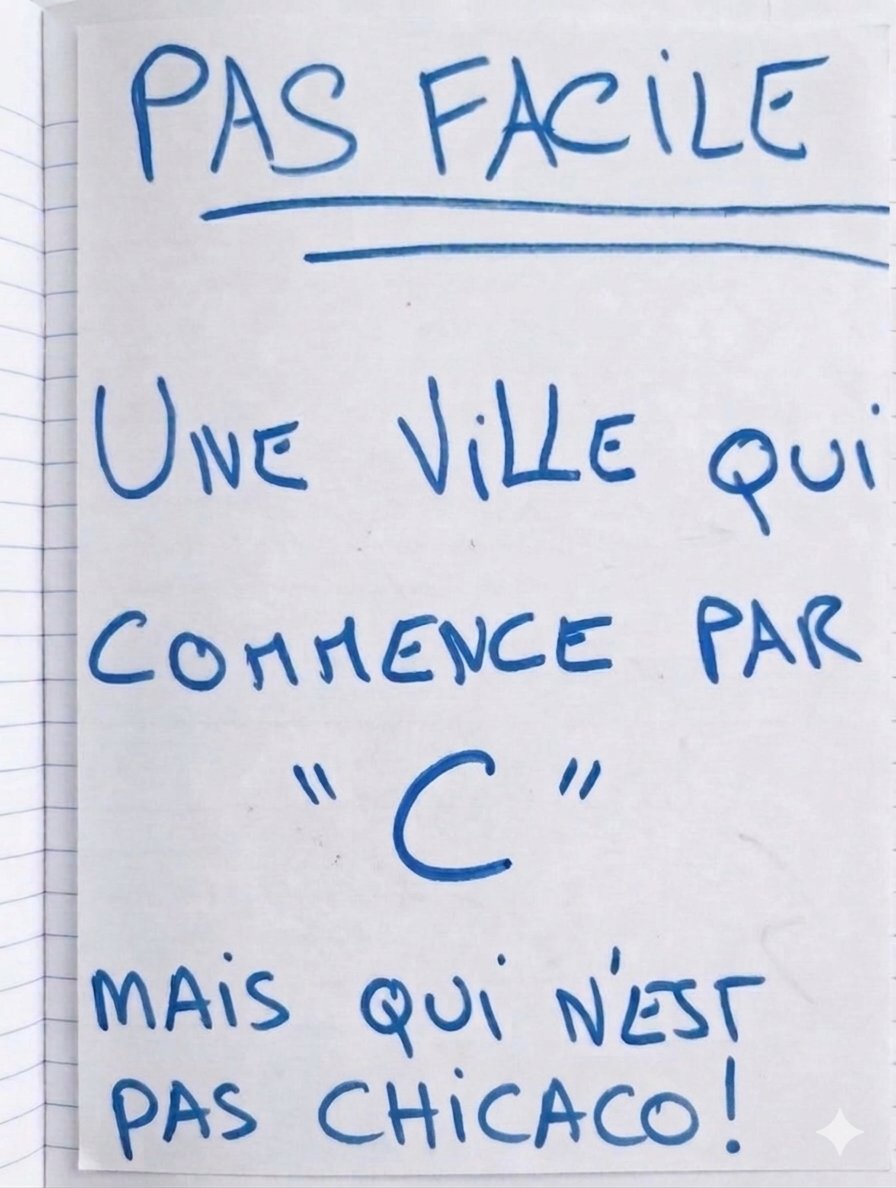 PAS FACILE
UNE VILLE QUI
COMMENCE PAR
"C"
MAIS QUI N'EST
PAS CHICACO!